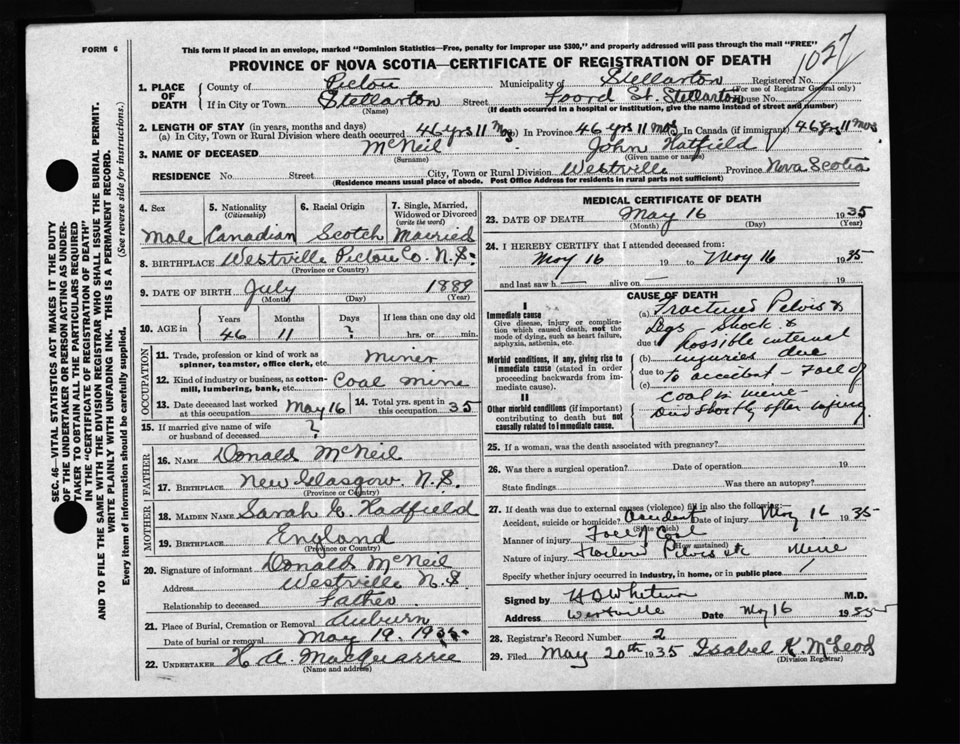 FORM 6
This form if placed in an envelope, marked "Dominion Statistics—Free, penalty for improper use $300," and properly addressed will pass through the mail "FREE"
PROVINCE OF NOVA SCOTIA—CERTIFICATE OF REGISTRATION OF DEATH
1027
1. PLACE OF DEATH
County of Pictou Municipality of Stellarton Registered No.
(For use of Registrar General only)
If in City or Town Stellarton Street Foord St. Stellarton House No.
(Name) (If death occurred in a hospital or institution, give the name instead of street and number)
2. LENGTH OF STAY (in years, months and days)
(a) In City, Town or Rural Division where death occurred 46 yrs 11 mos In Province 46 yrs 11 mos In Canada (if immigrant) 46 yrs 11 mos
3. NAME OF DECEASED McNeil John Hatfield
(Surname) (Given name or names)
RESIDENCE No. Street City, Town or Rural Division Westville Province Nova Scotia
(Residence means usual place of abode. Post Office Address for residents in rural parts not sufficient)
4. Sex 5. Nationality (Citizenship) 6. Racial Origin 7. Single, Married, Widowed or Divorced (write the word)
Male Canadian Scotch Married
8. BIRTHPLACE Westville Pictou Co. N.S.
(Province or Country)
9. DATE OF BIRTH July 1889
(Month) (Day) (Year)
10. AGE in Years Months Days If less than one day old
46 11 ? hrs. or min.
OCCUPATION
11. Trade, profession or kind of work as spinner, teamster, office clerk, etc. Miner
12. Kind of industry or business, as cotton-mill, lumbering, bank, etc. Coal mine
13. Date deceased last worked at this occupation May 16 14. Total yrs. spent in this occupation 35
15. If married give name of wife or husband of deceased ?
FATHER
16. NAME Donald McNeil
17. BIRTHPLACE New Glasgow. N.S.
(Province or Country)
MOTHER
18. MAIDEN NAME Sarah C. Hadfield
19. BIRTHPLACE England
(Province or Country)
20. Signature of informant Donald McNeil
Address Westville N.S
Relationship to deceased Father
21. Place of Burial, Cremation or Removal Auburn
Date of burial or removal May 19. 1935
22. UNDERTAKER H. A. MacQuarrie
(Name and address)
MEDICAL CERTIFICATE OF DEATH
23. DATE OF DEATH May 16 1935
(Month) (Day) (Year)
24. I HEREBY CERTIFY that I attended deceased from:
May 16 19 to May 16 1935
and last saw h — alive on — 19
CAUSE OF DEATH
I
Immediate cause
Give disease, injury or complication which caused death, not the mode of dying, such as heart failure, asphyxia, asthenia, etc.
Morbid conditions, if any, giving rise to immediate cause (stated in order proceeding backwards from immediate cause).
II
Other morbid conditions (if important) contributing to death but not causally related to immediate cause.
(a) Fractured Pelvis &
Legs Shock &
due to possible internal
(b) injuries due
due to to accident — Fall of
(c) coal in mine
Died shortly after injury
25. If a woman, was the death associated with pregnancy?
26. Was there a surgical operation? Date of operation 19
State findings Was there an autopsy?
27. If death was due to external causes (violence) fill in also the following:
Accident, suicide or homicide? Accident Date of injury May 16 1935
(State which)
Manner of injury Fall of Coal
(How sustained)
Nature of injury Pelvis etc Mine
Specify whether injury occurred in industry, in home, or in public place
Signed by M.D.
Address Westville Date May 16 1935
28. Registrar's Record Number 2
29. Filed May 20th 1935 Isabel K. McLeod
(Division Registrar)
SEC. 46—VITAL STATISTICS ACT MAKES IT THE DUTY
OF THE UNDERTAKER OR PERSON ACTING AS UNDER-
TAKER TO OBTAIN ALL THE PARTICULARS REQUIRED
IN THE "CERTIFICATE OF REGISTRATION OF DEATH"
AND TO FILE THE SAME WITH THE DIVISION REGISTRAR WHO SHALL ISSUE THE BURIAL PERMIT.
WRITE PLAINLY WITH UNFADING INK. THIS IS A PERMANENT RECORD.
Every item of information should be carefully supplied. (See reverse side for instructions.)